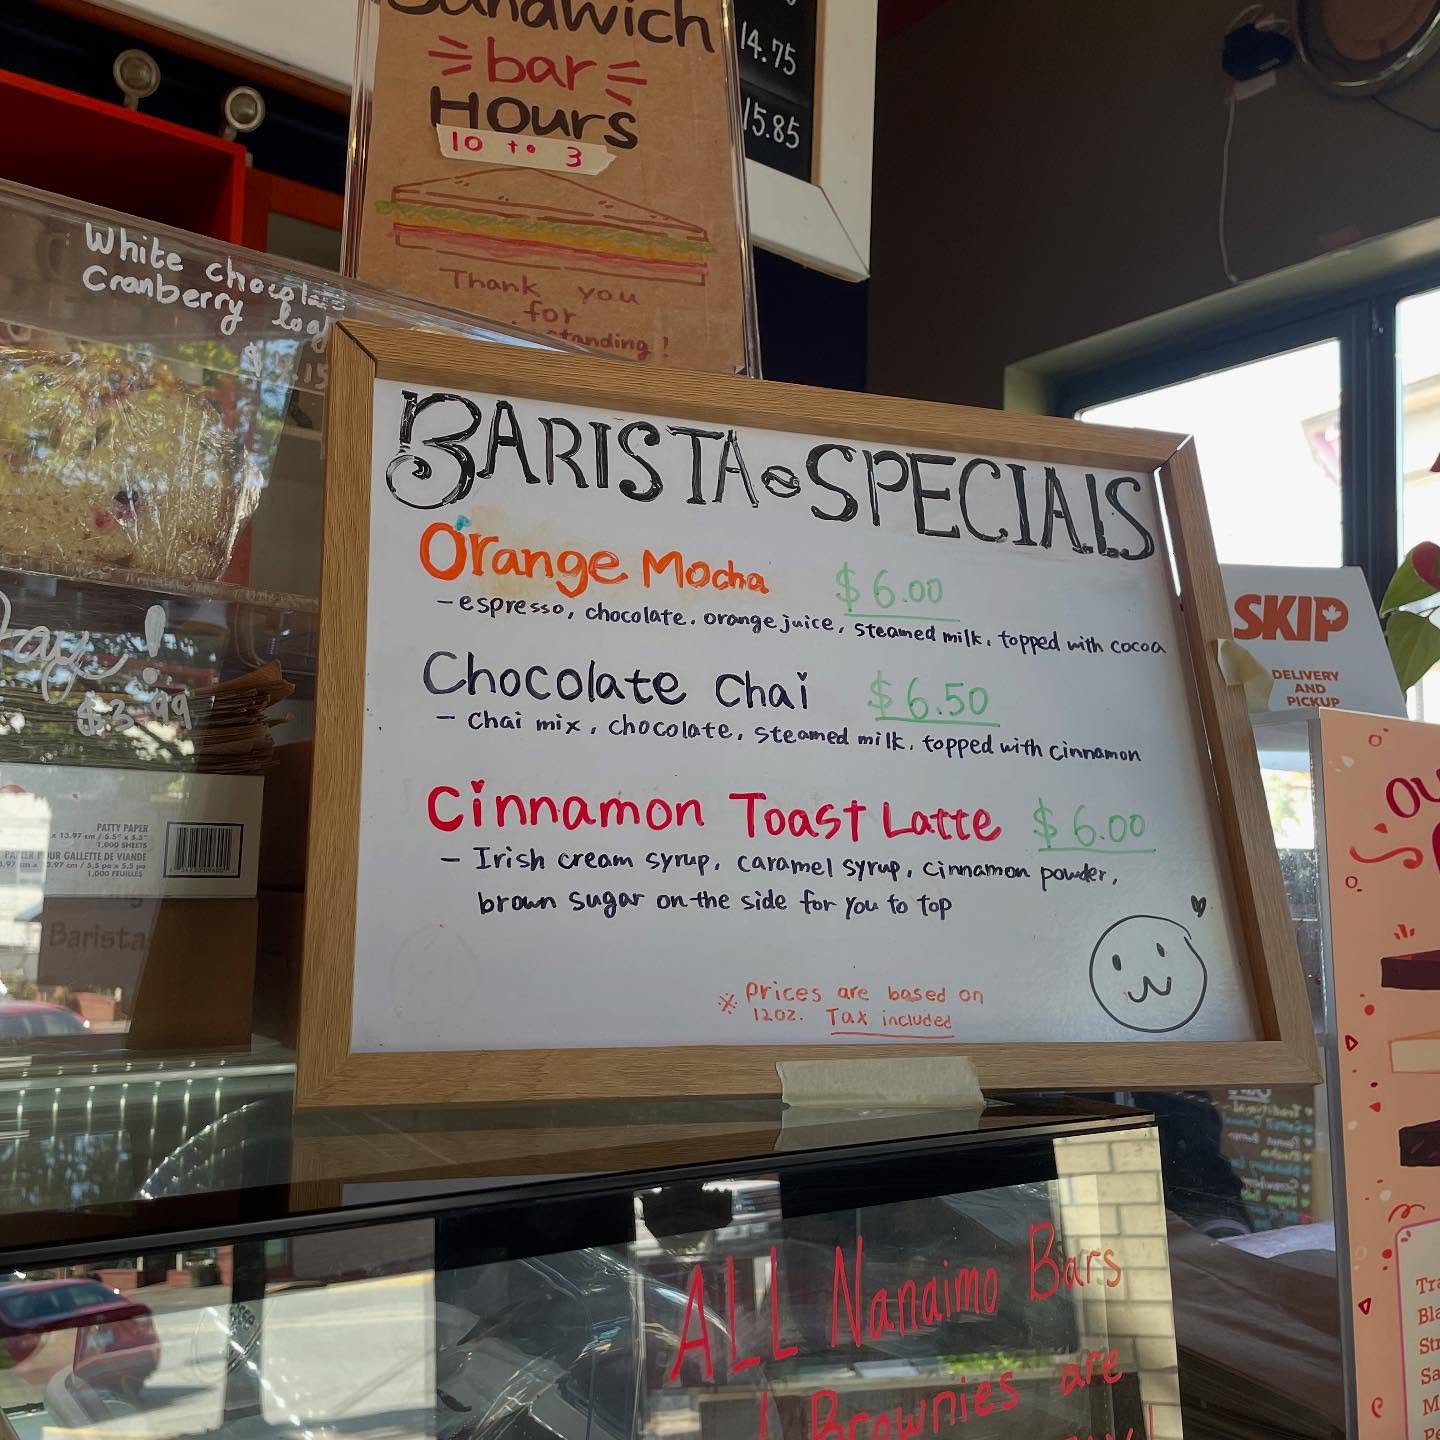 Sandwich
bar
Hours
10 to 3
Thank you
for
14.75
15.85
White chocolate
Cranberry loaf
BARISTA SPECIALS
Orange Mocha $6.00
- espresso, chocolate, orange juice, steamed milk, topped with cocoa
Chocolate Chai $6.50
- Chai mix, chocolate, steamed milk, topped with cinnamon
Cinnamon Toast Latte $6.00
- Irish cream syrup, caramel syrup, cinnamon powder,
brown sugar on the side for you to top
※ Prices are based on
12oz. Tax included
SKIP
DELIVERY
AND
PICKUP
$3.99
PATTY PAPER
1,000 SHEETS
1,000 FEUILLES
Baristas
ALL Nanaimo Bars
Brownies are